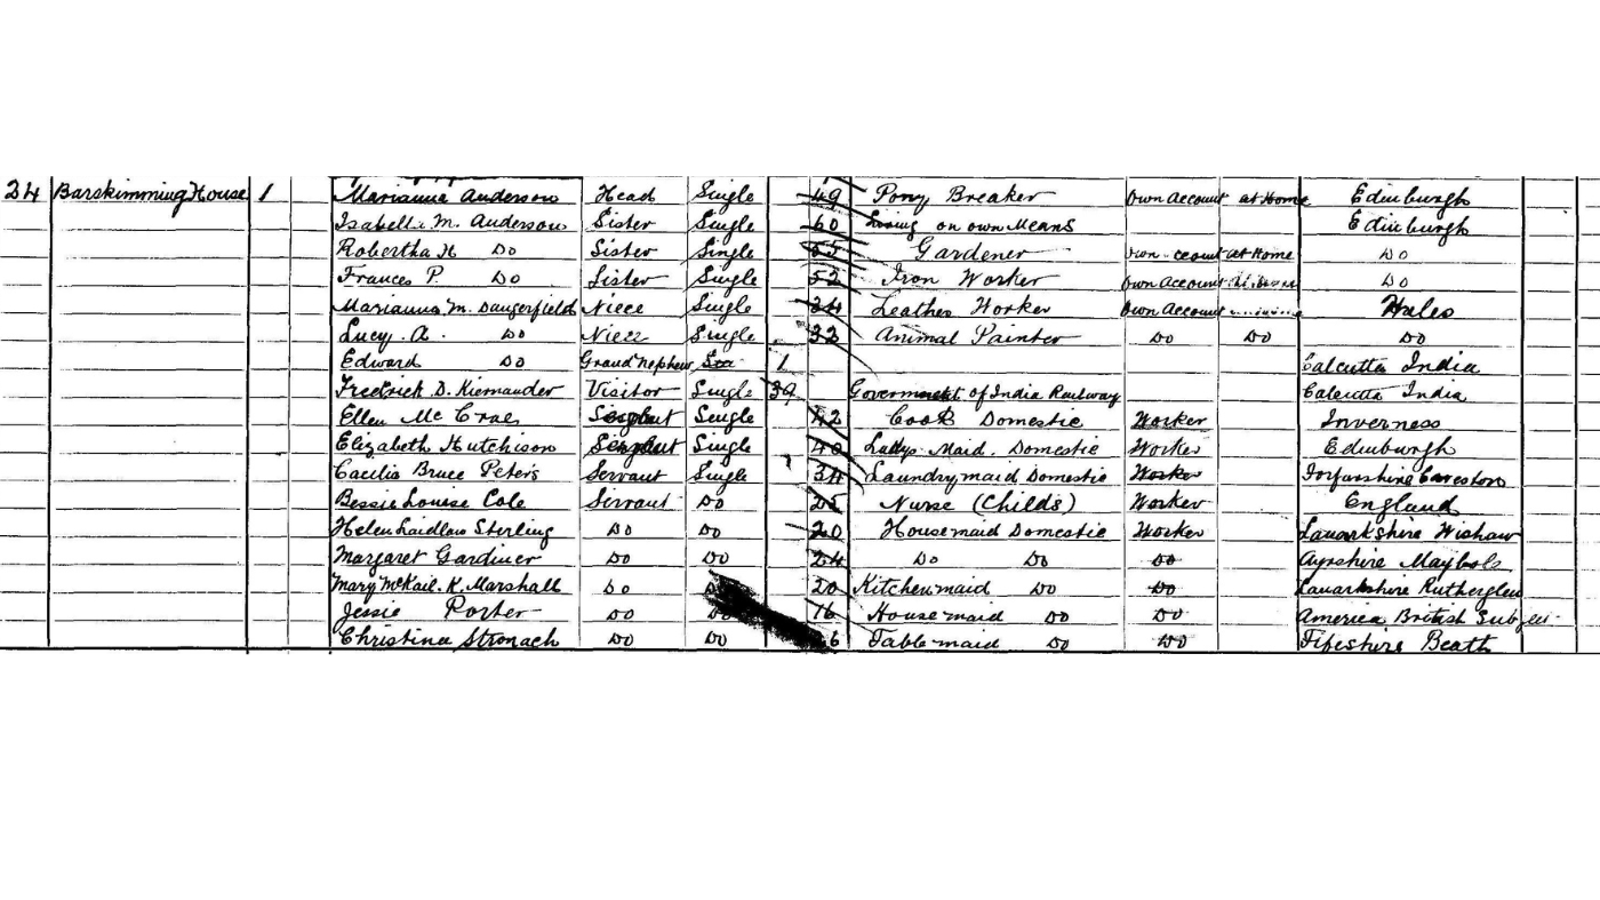 24 Barskimming House 1 Marianne Anderson Head Single 49 Pony Breaker Own Account at Home Edinburgh
Isabella M. Anderson Sister Single 60 Living on own Means Edinburgh
Robertha H Do Sister Single 55 Gardener Own ccount at Home Do
Frances P. Do Sister Single 52 Iron Worker Own Account Do
Marianna M. Dangerfield Niece Single 34 Leather Worker Own Account Wales
Lucy. A. Do Niece Single 33 Animal Painter Do Do Do
Edward Do Grand Nephew 1 Calcutta India
Fredrick D. Kiernander Visitor Single 39 Government of India Railway Calcutta India
Ellen Mc Crae Servant Single 42 Cook Domestic Worker Inverness
Elizabeth Hutchison Servant Single 40 Ladys Maid. Domestic Worker Edinburgh
Cacilia Bruce Peters Servant Single 34 Laundrymaid Domestic Worker Forfarshire Careston
Bessie Louise Cole Servant Do 25 Nurse (Childs) Worker England
Helen Laidlaw Sterling Do Do 20 Housemaid Domestic Worker Lanarkshire Wishaw
Margaret Gardiner Do Do 24 Do Do Do Ayrshire Maybole
Mary McKail. K. Marshall Do 20 Kitchenmaid Do Do Lanarkshire Rutherglen
Jessie Porter Do Do 16 Housemaid Do Do America British Subject
Christina Stronach Do Do 26 Tablemaid Do Do Fifeshire Beath